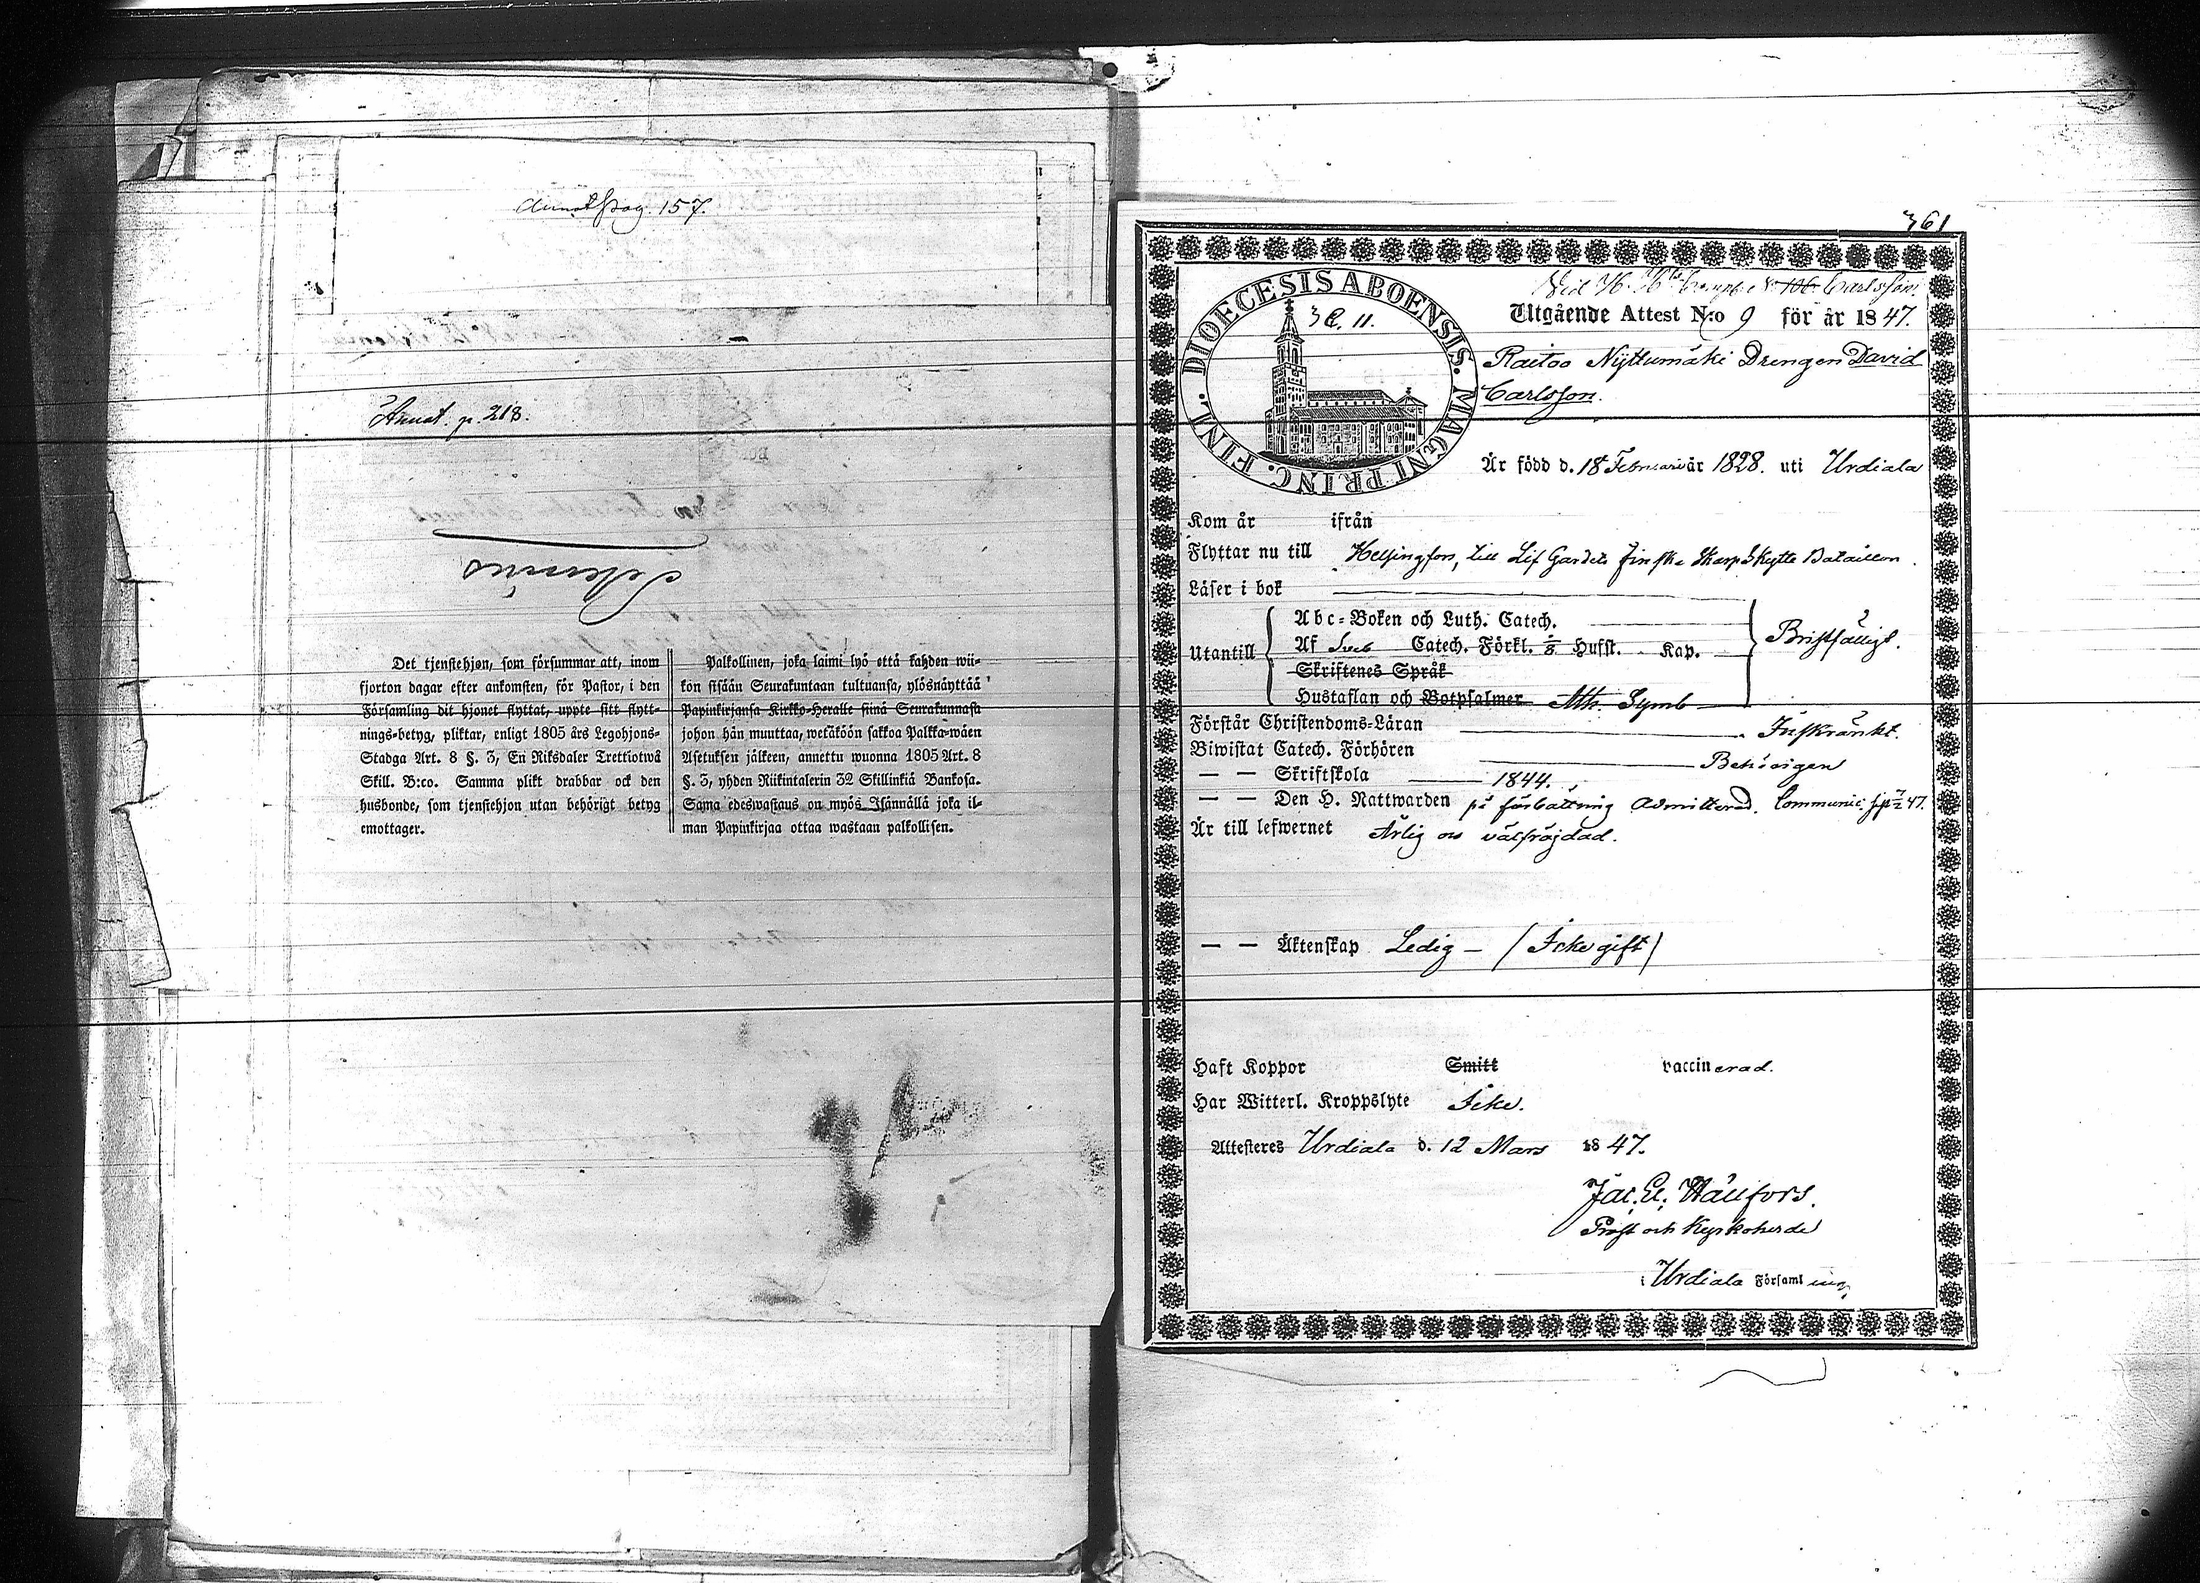 Annot. pag. 157.
Annot. p. 218.
Selenius
Det tjenstehjon, som försummar att, inom
fjorton dagar efter ankomsten, för Pastor, i den
Församling dit hjonet flyttat, uppte sitt flytt-
nings-betyg, pliktar, enligt 1805 års Legohjons-
Stadga Art. 8 §. 3, En Riksdaler Trettiotwå
Skill. B:co. Samma plikt drabbar ock den
husbonde, som tjenstehjon utan behörigt betyg
emottager.
Palkollinen, joka laimi lyö että kahden wii-
kon sisään Seurakuntaan tultuansa, ylösnäyttää
Papinkirjansa Kirkko-Heralle siinä Seurakunnasa
johon hän muuttaa, wetäköön sakkoa Palkka-wäen
Asetuksen jälkeen, annettu wuonna 1805 Art. 8
§. 3, yhden Riikintalerin 32 Skillinkiä Bankosa.
Sama edeswastaus on myös Isännällä joka il-
man Papinkirjaa ottaa wastaan palkollisen.
361
DIOECESIS ABOENSIS. MAGNI PRINC. FINL.
3 C. 11.
Vid Carlsson.
Utgående Attest N:o 9 för år 1847.
Raitoo Nyttumäki Drengen David
Carlsson.
Är född d. 18 Februari år 1828. uti Urdiala
Kom år ifrån
Flyttar nu till Helsingfors, till Lif Gardets Finska Skarp Skytte Bataillon.
Läser i bok
Utantill
Abc-Boken och Luth. Catech.
Af Sveb Catech. Förkl. Husst. Kap.
Skriftenes Språk
Hustaflan och Botpsalmer Ath. Symb
Bristfälligt.
Förstår Christendoms-Läran Inskränkt.
Biwistat Catech. Förhören Behörigen
— — Skriftskola 1844.
— — Den H. Nattwarden på förbättring admitterad. Communic. 47.
Är till lefwernet Ärlig och välfräjdad.
— — Äktenskap Ledig — (Icke gift)
Haft Koppor Smitt vaccinerad.
Har Witterl. Kroppslyte Icke.
Attesteres Urdiala d. 12 Mars 1847.
Jac. Ed. Hällfors.
Prost och Kyrkoherde
i Urdiala Församling